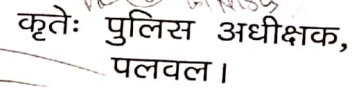 कृतेः पुलिस अधीक्षक,
पलवल।